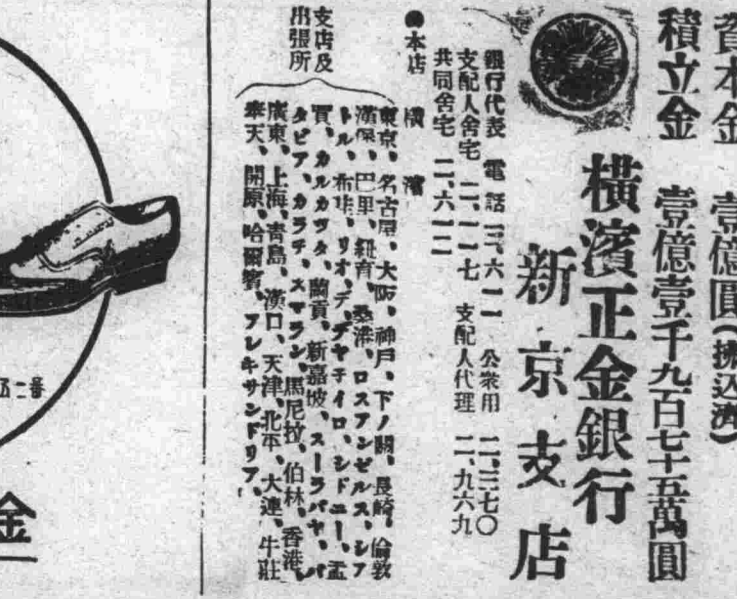 資本金 壹億圓(拂込濟)
積立金 壹億壹千九百七十五萬圓
橫濱正金銀行
新京支店
銀行代表 電話三、六一一 公衆用 二、三七〇
支配人舍宅 二、一一七 支配人代理 二、九六九
共同舍宅 二、六一二
●本店 橫濱
支店及
出張所
東京、名古屋、大阪、神戶、下ノ關、長崎、倫敦
漢堡、巴里、紐育、桑港、ロスアンゼルス、シア
トル、布哇、リオ、デ、ヂヤネイロ、シドニー、孟
買、カルカツタ、蘭貢、新嘉坡、スーラバヤ、バ
タビア、カラチ、スマラン、馬尼拉、伯林、香港、
廣東、上海、靑島、漢口、天津、北平、大連、牛莊
奉天、開原、哈爾賓、アレキサンドリア、
二番
金